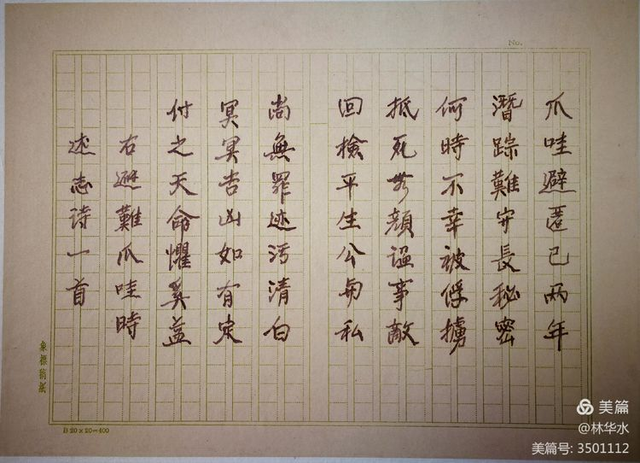 No.
爪哇避匿已两年
潛踪難守長秘密
何時不幸被俘擄
抵死无顔諂事敵
回檢平生公与私
尚無罪迹污清白
冥冥吉凶如有定
付之天命懼奚益
右避難爪哇時
述志诗一首
B 20 x 20=400
美篇
@林华水
美篇号: 3501112